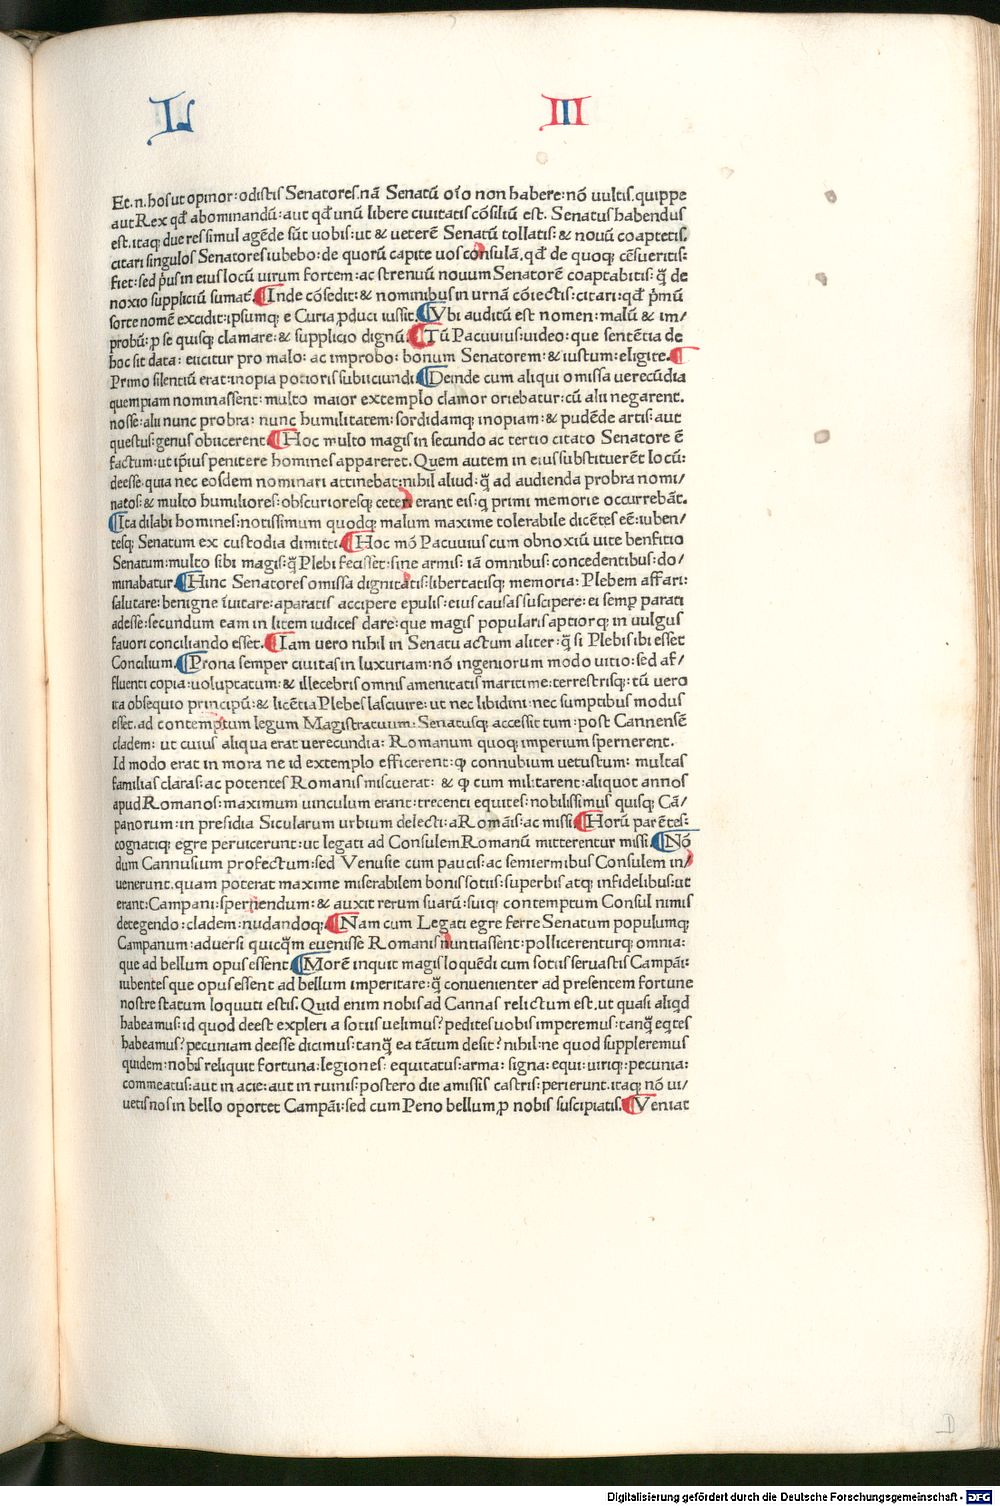 L III
Et.n.hos ut opinor:odistis Senatores.nā Senatū oīo non habere:nō uultis.quippe
aut Rex qđ abominandū:aut qđ unū libere ciuitatis cōsiliū est. Senatus habendus
est.itaq; due res simul agēde sūt uobis:ut & ueterē Senatū tollatis:& nouū coaptetis.
citari singulos Senatores iubebo:de quorū capite uos consulā.qđ de quoq; cēsueritis:
fiet:sed p̄us in eius locū uirum fortem:ac strenuū nouum Senatorē coaptabitis:q̄ de
noxio suppliciū sumat̄. Inde cōsedit:& nominibus in urnā cōiectis:citari:qđ p̄mū
sorte nomē excidit:ipsumq; e Curia ꝓduci iussit. Vbi auditū est nomen:malū & im/
probū:p se quisq; clamare:& supplicio dignū. Tū Pacuuius:uideo:que sentētia de
hoc sit data: eiicitur pro malo: ac improbo: bonum Senatorem:& iustum:eligite.
Primo silentiū erat:inopia potioris subiiciundi. Deinde cum aliqui omissa uerecūdia
quempiam nominassent:multo maior extemplo clamor oriebatur:cū alii negarent.
nosse:alii nunc probra: nunc humilitatem:sordidamq; inopiam:& pudēde artis:aut
questus:genus obiicerent. Hoc multo magis in secundo ac tertio citato Senatore ē
factum:ut ip̄ius penitere homines appareret. Quem autem in eius substituerēt locū:
deesse:quia nec eosdem nominari attinebat:nihil aliud:q̄ ad audienda probra nomi/
natos:& multo humiliores:obscurioresq; ceteri erant eis:q primi memorie occurrebāt.
Ita dilabi homines:notissimum quodq; malum maxime tolerabile dicētes eē:iuben/
tesq; Senatum ex custodia dimitti. Hoc mō Pacuuius cum obnoxiū uite benficio
Senatum:multo sibi magis:q̄ Plebi fecisset:sine armis: iā omnibus concedentibus:do/
minabatur. Hinc Senatores omissa dignitatis:libertatisq; memoria: Plebem affari:
salutare:benigne īuitare:aparatis accipere epulis:eius causas suscipere:ei semp̱ parati
adesse:secundum eam in litem iudices dare:que magis popularis aptiorq; in uulgus
fauori conciliando esset. Iam uero nihil in Senatu actum aliter:q̄ si Plebis ibi esset
Concilium. Prona semper ciuitas in luxuriam:nō ingeniorum modo uitio:sed af/
fluenti copia:uoluptatum:& illecebris omnis amenitatis maritime:terrestrisq;:tū uero
ita obsequio principū:& licētia Plebes lasciuire:ut nec libidini:nec sumptibus modus
esset.ad contemptum legum Magistratuum: Senatusq; accessit tum:post Cannensē
cladem: ut cuius aliqua erat uerecundia: Romanum quoq; imperium spernerent.
Id modo erat in mora ne id extemplo efficerent:ꝙ connubium uetustum: multas
familias claras:ac potentes Romanis miscuerat: & ꝙ cum militarent:aliquot annos
apud Romanos:maximum uinculum erant:trecenti equites:nobilissimus quisq; Cā/
panorum:in presidia Sicularum urbium delecti:a Romāis:ac missi. Horū parētes:
cognatiq; egre peruicerunt:ut legati ad Consulem Romanū mitterentur missi. Nō
dum Cannusium profectum:sed Venusie cum paucis:ac semiermibus Consulem in/
uenerunt.quam poterat maxime miserabilem bonis sotiis:superbis atq; infidelibus:ut
erant:Campani:spernendum:& auxit rerum suarū:suiq; contemptum Consul nimis
detegendo:cladem:nudandoq;. Nam cum Legati egre ferre Senatum populumq;
Campanum:aduersi quicq̄m euenisse Romanis nuntiassent:pollicerenturq; omnia:
que ad bellum opus essent. Morē inquit magis loquēdi cum sotiis seruastis Campāi:
iubentes que opus essent ad bellum imperitare:q̄ conuenienter ad presentem fortune
nostre statum loquuti estis. Quid enim nobis ad Cannas relictum est.ut quasi aliqd
habeamus:id quod deest expleri a sotiis uelimus? pedites uobis imperemus:tanq̄ eq̄tes
habeamus? pecuniam deesse dicimus:tanq̄ ea tātum desit? nihil:ne quod suppleremus
quidem:nobis reliquit fortuna:legiones: equitatus:arma: signa: equi:uiriq;:pecunia:
commeatus:aut in acie:aut in ruinis:postero die amissis castris:perierunt.itaq; nō ui/
uetis nos in bello oportet Campāi:sed cum Peno bellum ꝓ nobis suscipiatis. Veniat
D
Digitalisierung gefördert durch die Deutsche Forschungsgemeinschaft - DFG